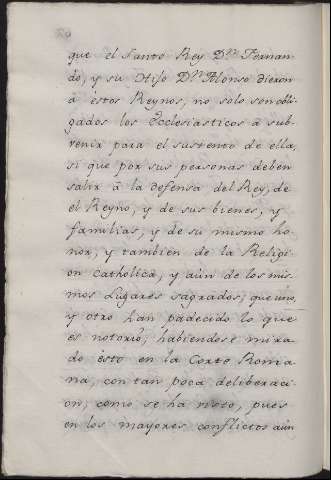 que el Santo Rey Dⁿ Fernan-
do, y su Hijo Dⁿ Alonso dieron
à èstos Reynos, no solo son obli-
gados los Ecclesiasticos à sub-
venir para el sustento de ella,
si que por sus personas deben
salir à la defensa del Rey, de
el Reyno, y de sus bienes, y
familias, y de su mismo ho-
nor, y tambien de la Religi-
on catholica, y aùn de los mis-
mos Lugares sagrados, que uno,
y otro han padecido lo que
es notorio, habiendose mira-
do èsto en la Corte Roma-
na, con tan poca deliberaci-
on, como se ha visto, pues
en los mayores conflictos aùn